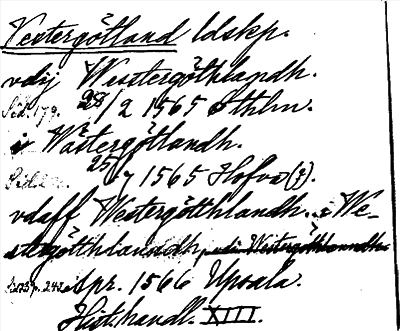 Vestergötland ldskp.
vdij Westergöthlagndh.
Sid. 179. 28/2 1565 Sthlm.
i Wästergötlandh.
25/7 1565 Hofva(?).
vdaff Westergötthlandh. i We-
stergötthlanndh, vdi Westergötthlanndh
Apr. 1566 Upsala.
Hist. handl. XIII.